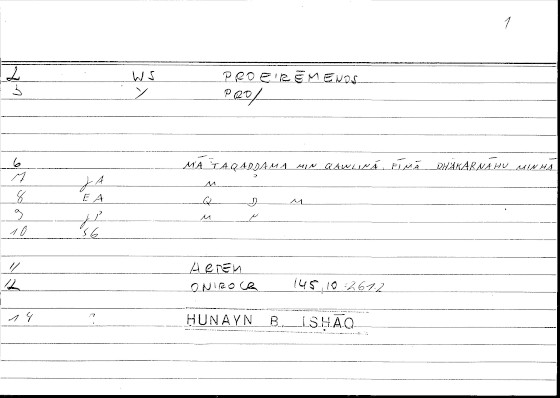 1
2 WS PROEIRĒMENOS
3 Y PRO/
6 MĀ TAQADDAMA MIN QAWLINĀ, FĪMĀ DHAKARNĀHU MINHĀ
7 JA M
8 EA Q D M
9 JP M
10 SG
11 ARTEM
12 ONIROCR 145,10-2612
14 ? HUNAYN B. ISḤĀQ